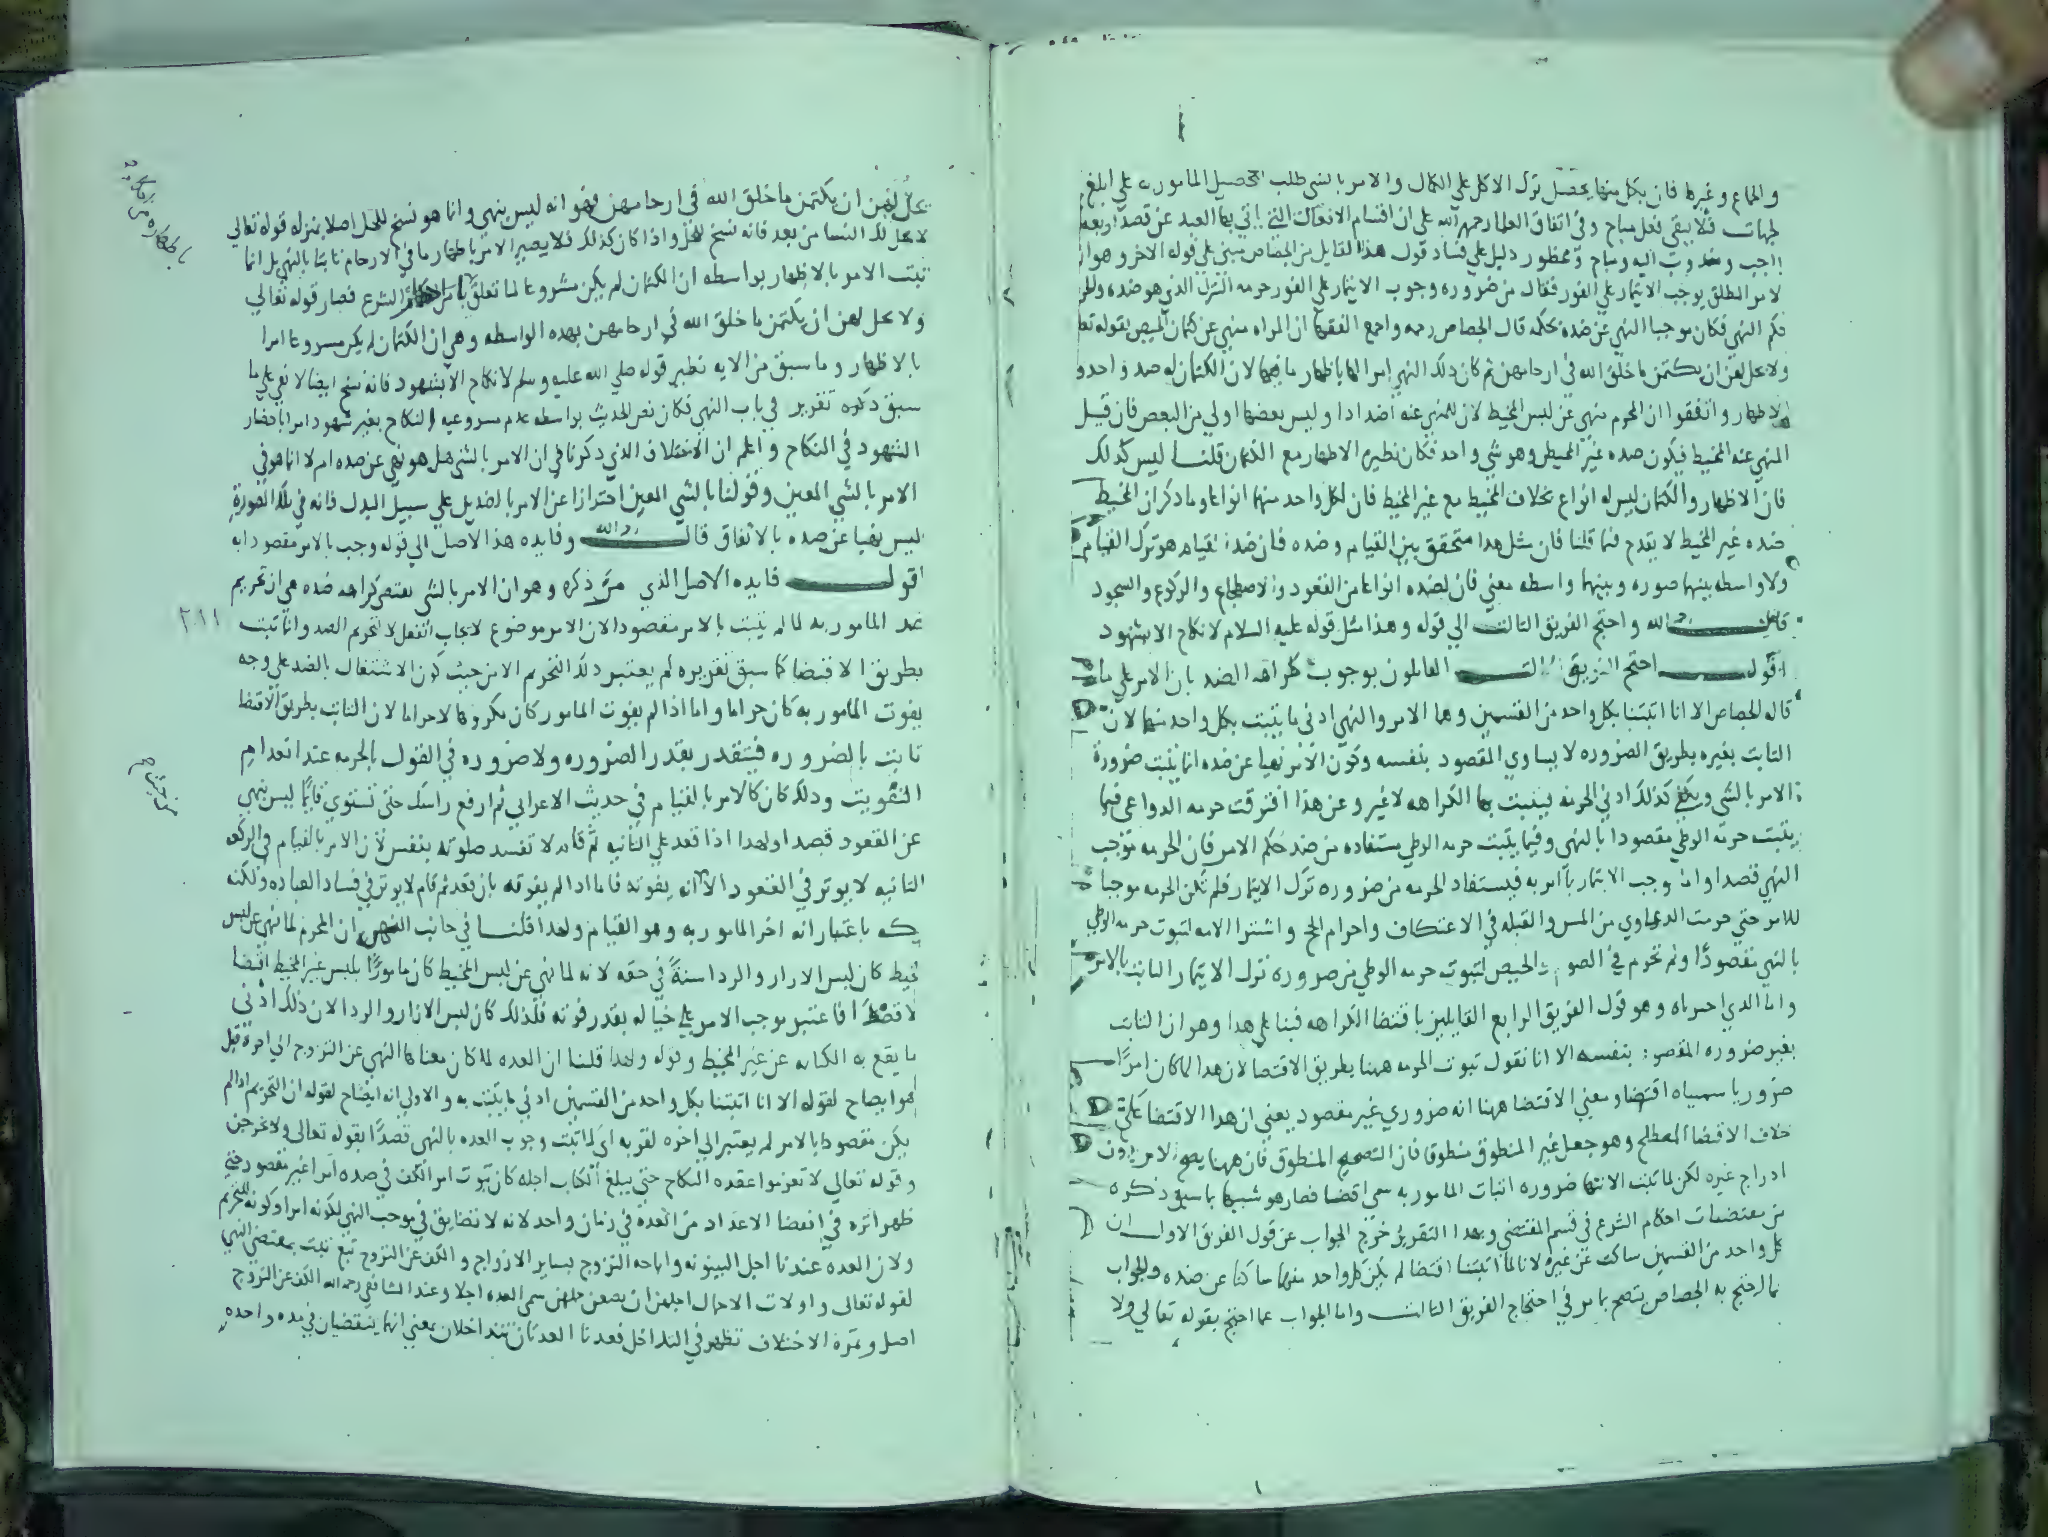 والجماع وغيرها فان بكل منها يحصل ترك الاكل علي الكمال والامر بالشي طلب لتحصيل المامور به علي ابلغ
الجهات فلا يبقي فعل مباح وفي اتفاق العلما رحمهم الله علي ان اقسام الافعال التي ياتي بها العبد عن قصد اربعة
واجب ومندوب اليه ومباح ومحظور دليل علي فساد قول هذا القايل من الجصاص مبني علي قوله الاخر وهو ان
الامر المطلق يوجب الايتمار علي الفور فقال من ضرورة وجوب الايتمار علي الفور حرمة الترك الذي هو ضده والحرمة
حكم النهي فكان موجبا النهي عن ضده بحكمه قال الجصاص رحمه واجمع الفقها ان المراه منهي عن كتمان الحيض بقوله تعا
ولا يحل لهن ان يكتمن ما خلق الله في ارحامهن ثم كان ذلك النهي امرا لها باظهار ما فيها لان الكتمان له ضد واحد و
الاظهار واتفقوا ان المحرم منهي عن لبس المخيط لان للمنهي عنه اضدادا وليس بعضها اولي من البعض فان قيل
المنهي عنه المخيط فيكون ضده غير المخيط وهو شي واحد فكان نظيره الاظهار مع الكتمان قلنا ليس كذلك
فان الاظهار والكتمان ليس له انواع بخلاف المخيط مع غير المخيط فان لكل واحد منهما انواعا وما ذكر ان المخيط
ضده غير المخيط لا يقدح فيما قلنا فان مثل هذا متحقق بين القيام وضده فان ضد القيام هو ترك القيام
ولا واسطه بينهما صوره وبينهما واسطه معني فان لضده انواعا من القعود والاضطجاع والركوع والسجود
قال رحمه الله واحتج الفريق الثالث الي قوله وهذا مثل قوله عليه السلام لا نكاح الا بشهود
اقول احتج الفريق الثالث القايلون بوجوب كراهه الضد بان الامر علي ما
قاله الجصاص الا انا اثبتنا بكل واحد من القسمين وهما الامر والنهي ادني ما يثبت بكل واحد منهما لان
الثابت بغيره بطريق الضروره لا يساوي المقصود بنفسه وكون الامر نهيا عن ضده انما يثبت ضرورة
الامر بالشي ويكفي كذلك ادني الحرمه فيثبت بها الكراهه لا غير وعن هذا افترقت حرمه الدواعي فيما
يثبت حرمة الوطي مقصودا بالنهي وفيما يثبت حرمه الوطي مستفاده من ضد حكم الامر فان الحرمه موجب
النهي قصدا وانما وجب الايتمار بالامر به فيستفاد الحرمه من ضروره ترك الايتمار فلم تكن الحرمه موجبا
للامر حتي حرمت الدواعي من المس والقبله في الاعتكاف واحرام الحج واشترا الامه لثبوت حرمه الوطي
بالنهي مقصودا ولم تحرم في الصوم والحيض لثبوت حرمه الوطي من ضروره ترك الايتمار الثابت بالامر
واما الذي اخترناه وهو قول الفريق الرابع القايلين باقتضا الكراهه فبنا علي هذا وهو ان الثابت
بغير ضروره المقصود بنفسه الا انا نقول ثبوت الحرمه ههنا بطريق الاقتضا لان هذا لما كان امرا
ضروريا سميناه اقتضا ومعني الاقتضا ههنا انه ضروري غير مقصود يعني ان هذا الاقتضا علي
خلاف الاقتضا المصطلح وهو جعل غير المنطوق منطوقا فان لتصحيح المنطوق فان ههنا يصح الامر بدون
ادراج غيره لكن لما ثبت الانتها ضروره اثبات المامور به سمي اقتضا فصار هو شبيها بما سبق ذكره
من مقتضيات احكام الشرع في قسم المقتضي وبهذا التقرير خرج الجواب عن قول الفريق الاول ان
كل واحد من القسمين ساكت عن غيره لانا لما اثبتنا اقتضا لم يكن كل واحد منهما ساكتا عن ضده والجواب
عما احتج به الجصاص يتضح بما مر في احتجاج الفريق الثالث واما الجواب عما احتج بقوله تعالي ولا
يحل لهن ان يكتمن ما خلق الله في ارحامهن فهو انه ليس بنهي وانما هو نسخ للحل اصلا بمنزله قوله تعالي
لا يحل لك النسا من بعد فانه نسخ للحل واذا كان كذلك فلا يصير الامر باظهار ما في الارحام ثابتا بالنهي بل انما
يثبت الامر بالاظهار بواسطه ان الكتمان لم يكن مشروعا لما تعلق باظهاره من احكام الشرع فصار قوله تعالي
ولا يحل لهن ان يكتمن ما خلق الله في ارحامهن بهذه الواسطه وهي ان الكتمان لم يكن مشروعا امرا
بالاظهار وما سبق من الايه نظير قوله صلي الله عليه وسلم لا نكاح الا بشهود فانه نسخ ايضا لا نفي علي ما
سبق ذكره تقرير في باب النهي فكان نص الحديث بواسطه عدم مشروعيه النكاح بغير شهود امرا باحضار
الشهود في النكاح واعلم ان الاختلاف الذي ذكرنا في ان الامر بالشي هل هو نهي عن ضده ام لا انما هو في
الامر بالشي المعين وقولنا بالشي المعين احترازا عن الامر بالضدين علي سبيل البدل فانه في تلك الصورة
ليس نهيا عن ضده بالاتفاق قال رحمه الله وفايده هذا الاصل الي قوله وجب بالامر مقصودا به
اقول فايده الاصل الذي مر ذكره وهو ان الامر بالشي يقتضي كراهه ضده هي ان تحريم
ضد المامور به لما لم يثبت بالامر مقصودا لان الامر موضوع لايجاب الفعل لا لتحريم الضد وانما ثبت
بطريق الاقتضا كما سبق تقريره لم يعتبر ذلك التحريم الا من حيث كون الاشتغال بالضد علي وجه
يفوت المامور به كان حراما واما اذا لم يفوت المامور كان مكروها لا حراما لان الثابت بطريق الاقتضا
ثابت بالضروره فيتقدر بقدر الضروره ولا ضروره في القول بالحرمه عند انعدام
التفويت وذلك كان كالامر بالقيام في حديث الاعرابي ثم ارفع راسك حتي تستوي قايما ليس بنهي
عن القعود قصدا ولهذا اذا قعد علي الثانيه ثم قام لا تفسد صلوته بنفس لان الامر بالقيام في الركعه
الثانيه لا يوثر في القعود الا انه يفوته فاما اذا لم يفوته بان قعد ثم قام لا يوثر في فساد العباده ولكنه
يكره باعتبار انه اخر المامور به وهو القيام ولهذا قلنا في جانب النهي ان المحرم لما نهي عن لبس
المخيط كان لبس الازار والردا سنة في حقه لانه لما نهي عن لبس المخيط كان مامورا بلبس غير المخيط اقتضا
لا قصدا فاعتبر موجب الامر علي خياله بقدر قوته فلذلك كان لبس الازار والردا لان ذلك ادني
ما يقع به الكفايه عن غير المخيط وقوله ولهذا قلنا ان العده لما كان معناها النهي عن التزوج الي اخره قيل
هو ايضاح لقوله الا انا اثبتنا بكل واحد من القسمين ادني ما يثبت به والاولي انه ايضاح لقوله ان التحريم اذا لم
يكن مقصودا بالامر لم يعتبر الي اخره لقربه اي لما ثبت وجوب العده بالنهي قصدا بقوله تعالي ولا يخرجن
وقوله تعالي لا تعزموا عقده النكاح حتي يبلغ الكتاب اجله كان ثبوت امر الكف في ضده امرا غير مقصود حتي
ظهر اثره في انقضا الاعداد من العدة في زمان واحد لانه لا تضايق في موجب النهي لكونه امرا وكونه للتحريم
ولان العده عندنا اجل البينونه واباحه التزوج بساير الازواج والكف عن التزوج تبع يثبت بمقتضي النهي
لقوله تعالي واولات الاحمال اجلهن ان يضعن حملهن سمي العده اجلا وعند الشافعي رحمه الله الكف عن التزوج
اصل وثمرة الاختلاف تظهر في التداخل فعندنا العدتان تتداخلان بمعني انهما ينقضيان في مده واحده
٢١١
من حيث